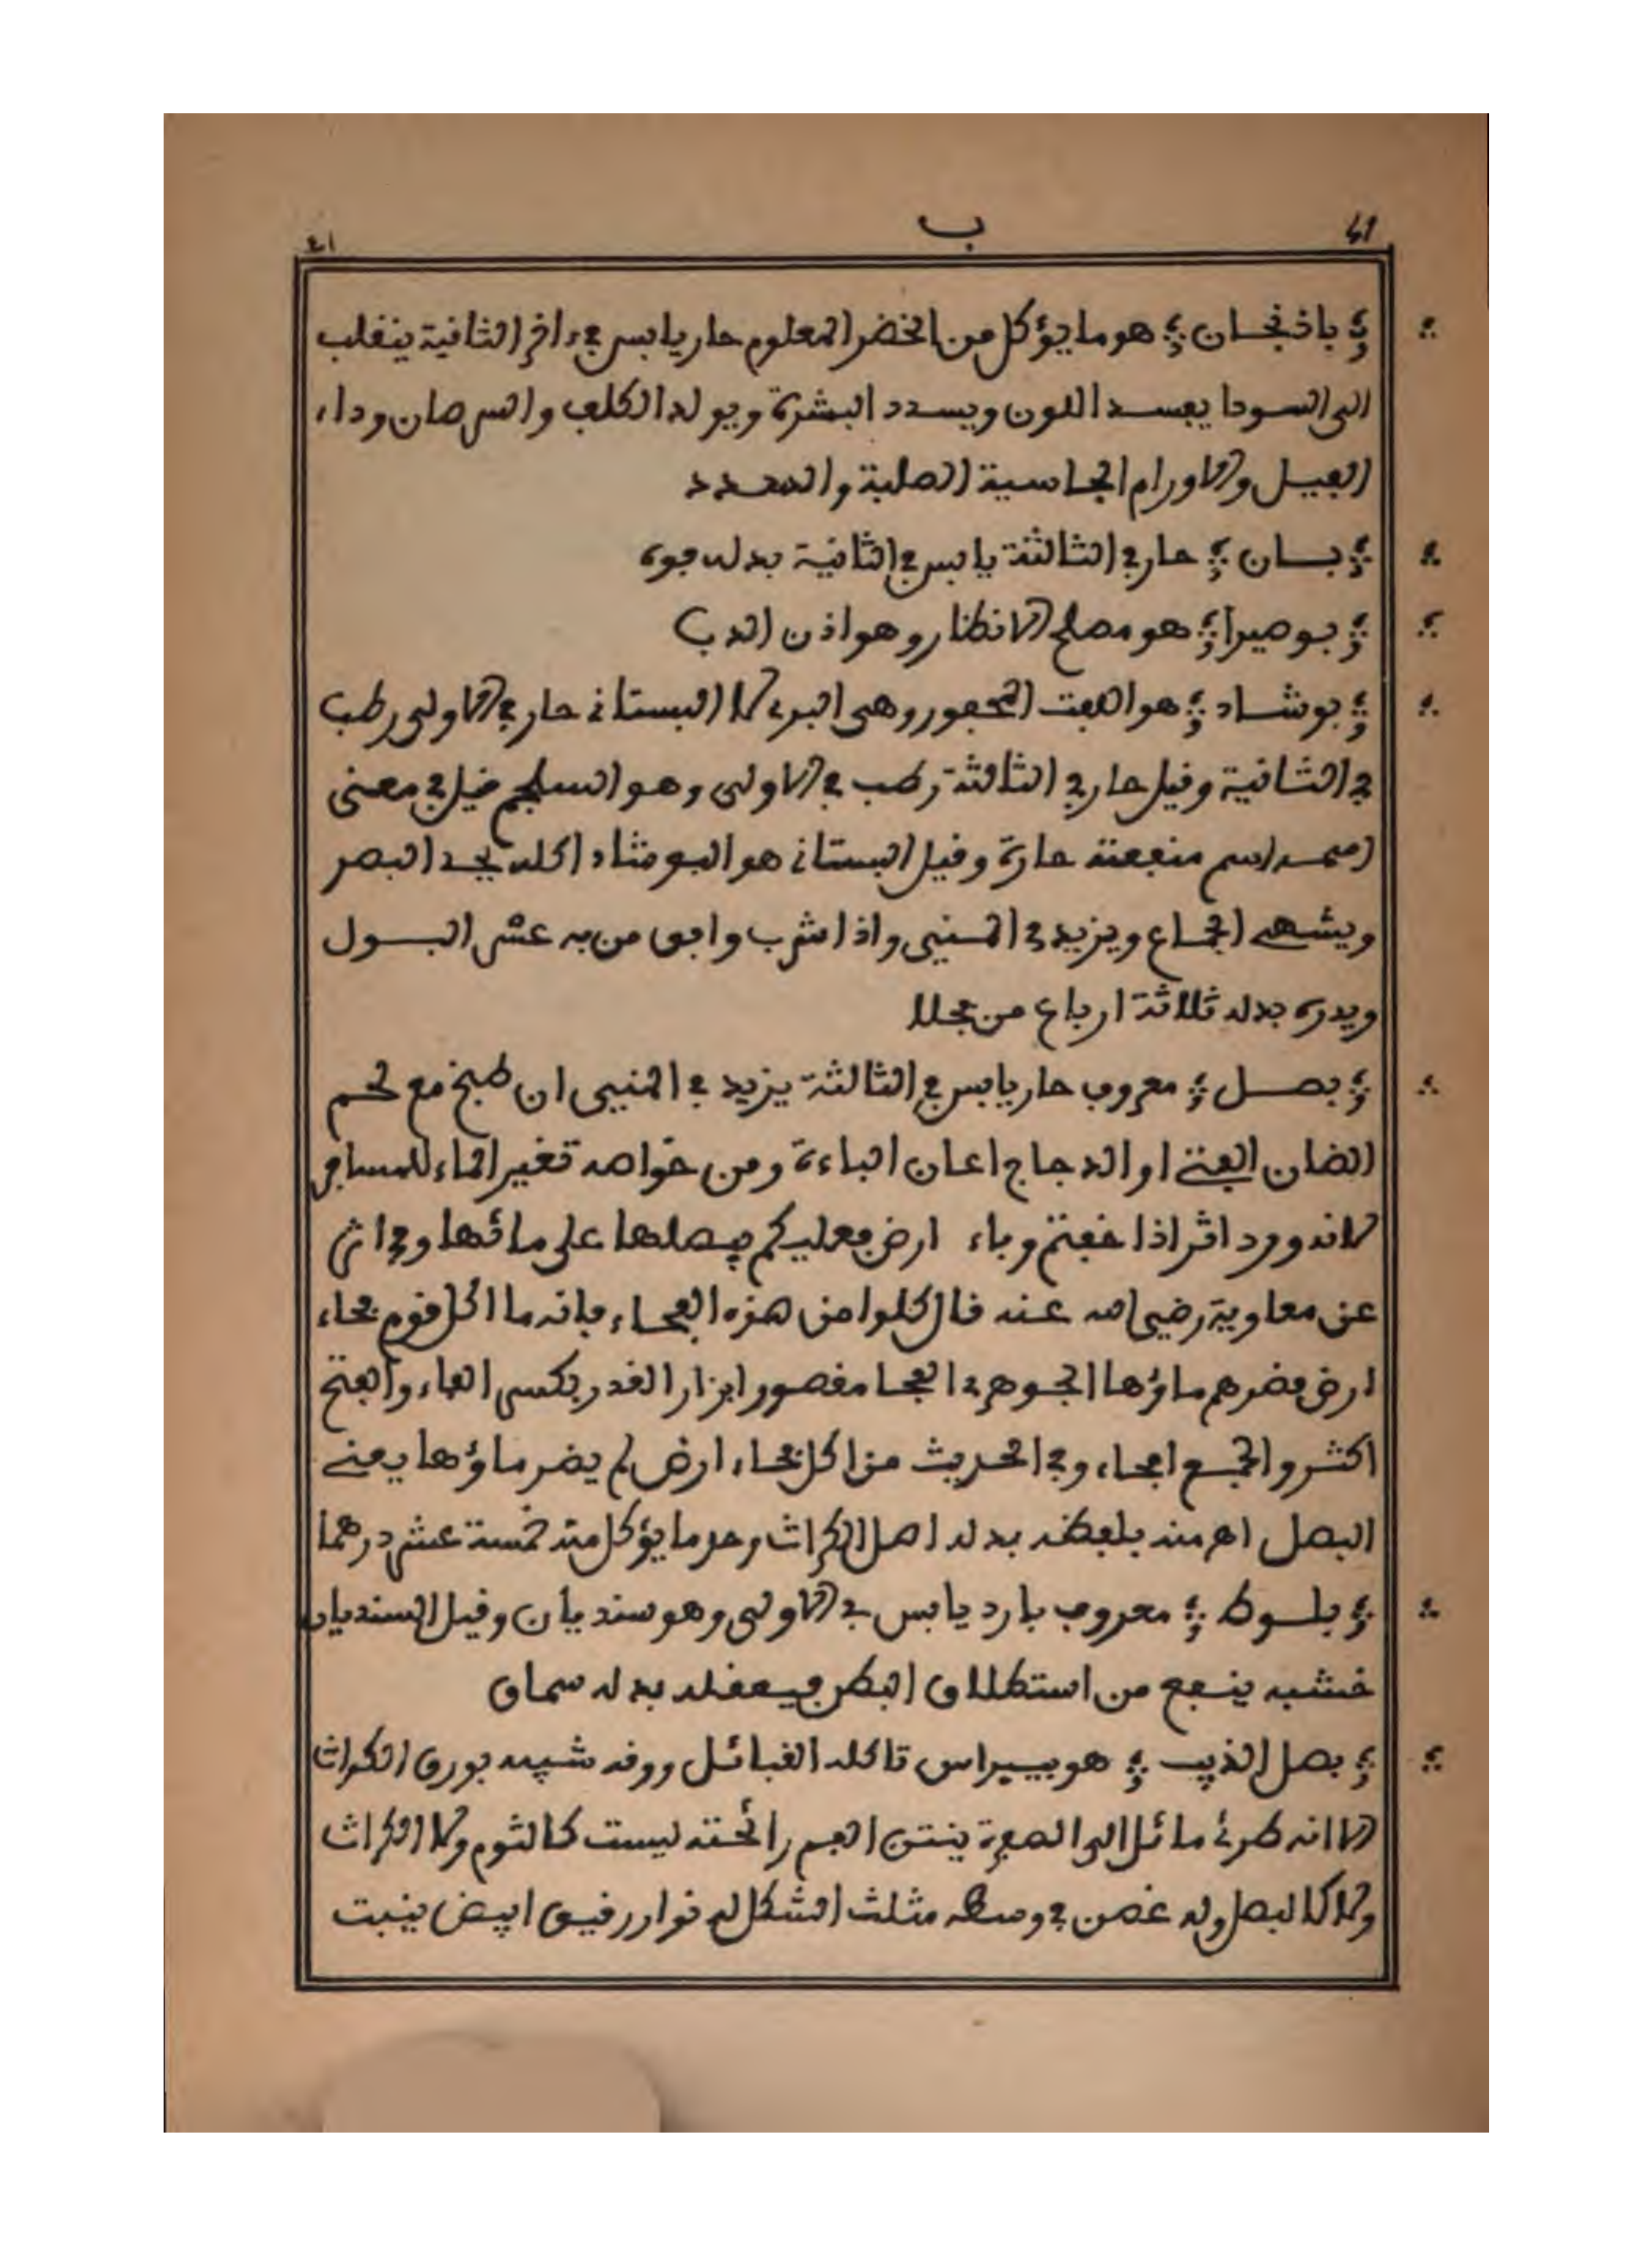 41 ب ٤١
باذنجان هو ما يؤكل من الخضر المعلوم حار يابس في ءاخر الثانية ينقلب
الى السودا يفسد اللون ويسدد البشرة ويولد الكلف والسرطان وداء
الفيل والاورام الجاسية الصلبة والسدد
بان حار في الثالثة يابس في الثانية بدله فوة
بوصيرا هو مصلح الانظار وهو اذن الدب
بوشاد هو اللفت المحفور وهي البري لا البستاني حار في الاولى رطب
في الثانية وقيل حار في الثالثة رطب في الاولى وهو السلجم قيل في معنى
اسم منفعته حارة وقيل البستاني هو البوشاد اكله يحد البصر
ويشهي الجماع ويزيد في المني واذا شرب وافق من به عسر البول
ويدره بدله ثلاثة ارباع من فجلا
بصل معروف حار يابس في الثالثة يزيد في المني ان طبخ مع لحم
الضان الفتي او الدجاج اعان الباءة ومن خواصه تغير الماء للمسافر
لانه ورد اثر اذا خفتم وباء ارض فعليكم ببصلها على مائها وفي اثر
عن معاوية رضي الله عنه قال كلوا من هذه الفحاء فانه ما اكل قوم فحاء
ارض فضرهم ماؤها الجوهري الفحا مقصور ابزار القدر بكسر الفاء والفتح
اكثر والجمع افحاء وفي الحديث من اكل فحاء ارض لم يضر ماؤها يعني
البصل اهـ منه بلفظه بدله اصل الكراث وحد ما يؤكل منه خمسة عشر درهما
بلوط معروف بارد يابس في الاولى وهو سنديان وقيل السنديان
خشبه ينفع من استطلاق البطن فيعقله بدله سماق
بصل الذيب هو بيبراس تاكله القبائل وورقه شبيه بورق الكراث
الا انه طري مائل الى الصفرة ينتن الفم رائحته ليست كالثوم ولا الكراث
ولا كالبصل وله غصن في وسطه مثلث الشكل له نوار رقيق ابيض ينبت